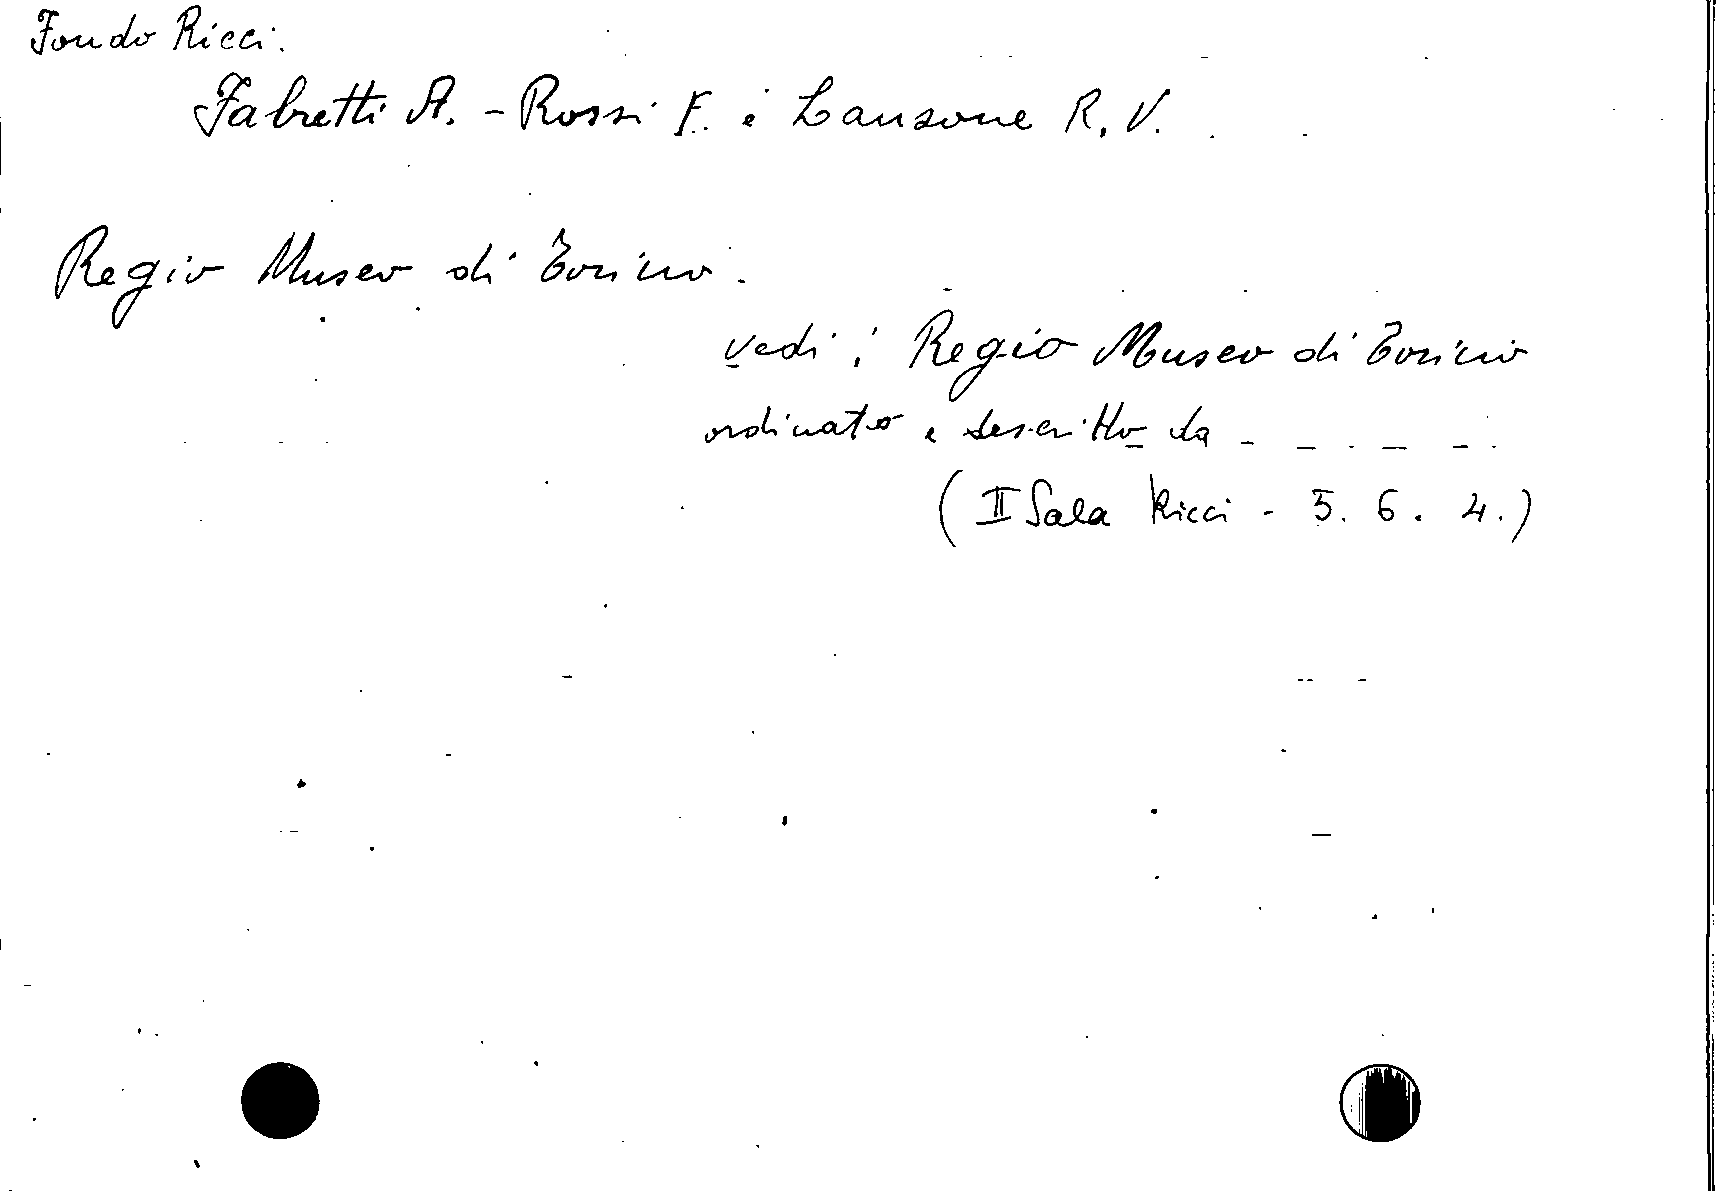 Fondo Ricci.
Fabretti A. - Rossi F. e Lansone R. V.
Regio Museo di Torino.
vedi : Regio Museo di Torino
ordinato e descritto da - - - - -
( II Sala Ricci - 5. 6. 4.)